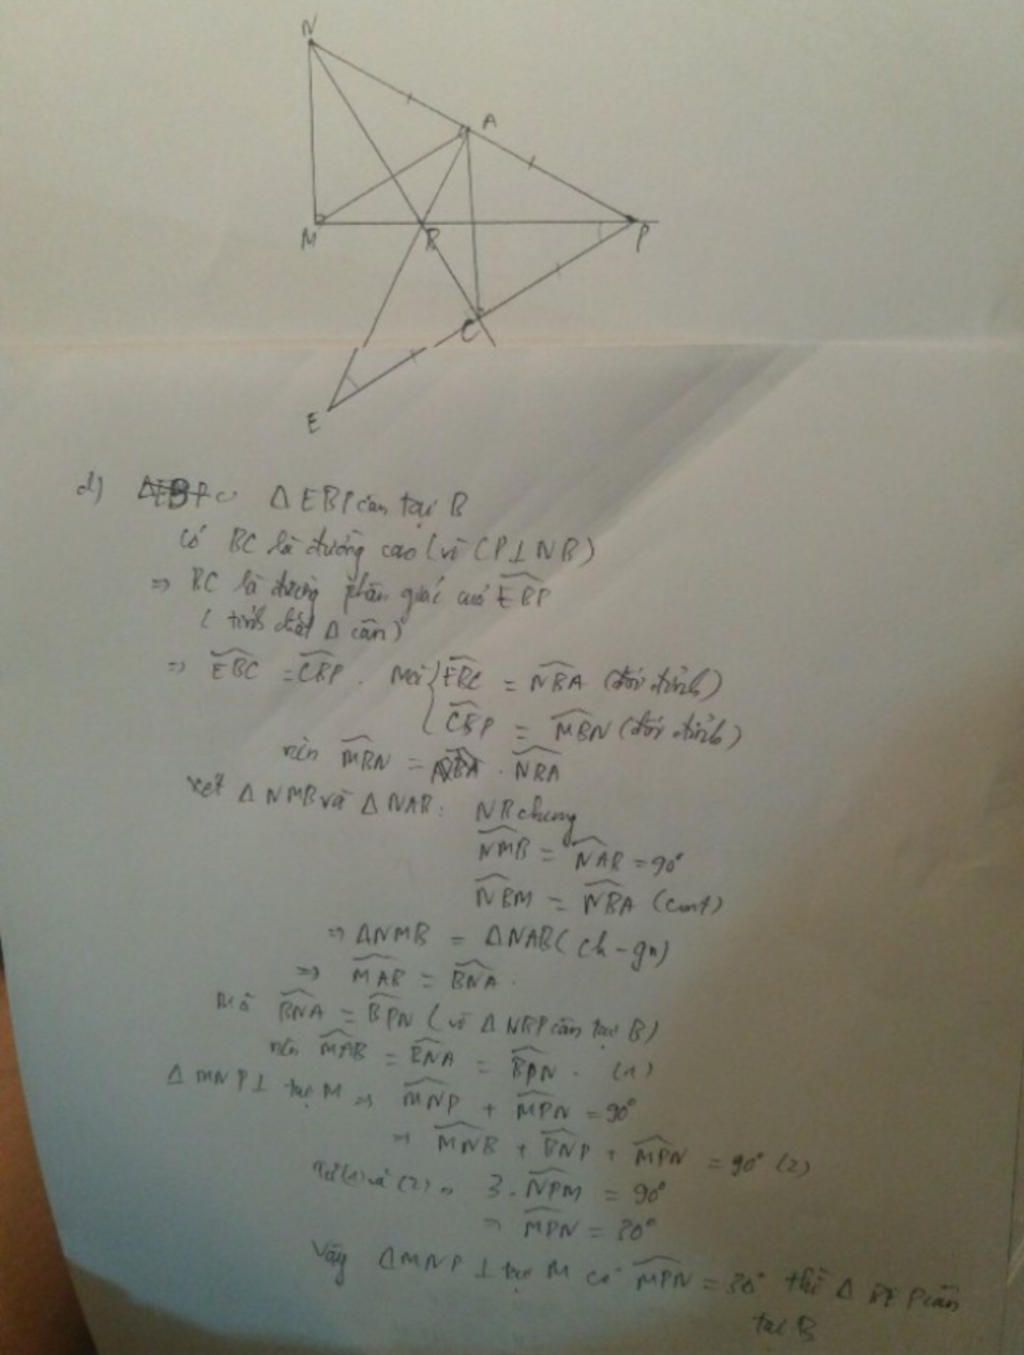 N
A
M
B
P
C
E
d) ΔEBP cân tại B
Có BC là đường cao (vì CP⊥NB)
=> BC là đường phân giác của EBP
(tính chất Δ cân)
=> EBC = CBP. Mà { EBC = NBA (đối đỉnh)
CBP = MBN (đối đỉnh)
nên MBN = NBA
xét ΔNMB và ΔNAB: NB chung
NMB = NAB = 90°
NBM = NBA (cmt)
=> ΔNMB = ΔNAB (ch-gn)
=> MAB = BNA.
Mà BNA = BPN (vì ΔNBP cân tại B)
nên MAB = BNA = BPN. (1)
ΔMNP⊥ tại M => MNP + MPN = 90°
=> MNB + BNP + MPN = 90° (2)
Từ (1) và (2) => 3.NPM = 90°
=> MPN = 30°
Vậy ΔMNP⊥ tại M có MPN = 30° thì Δ BEP cân
tại B